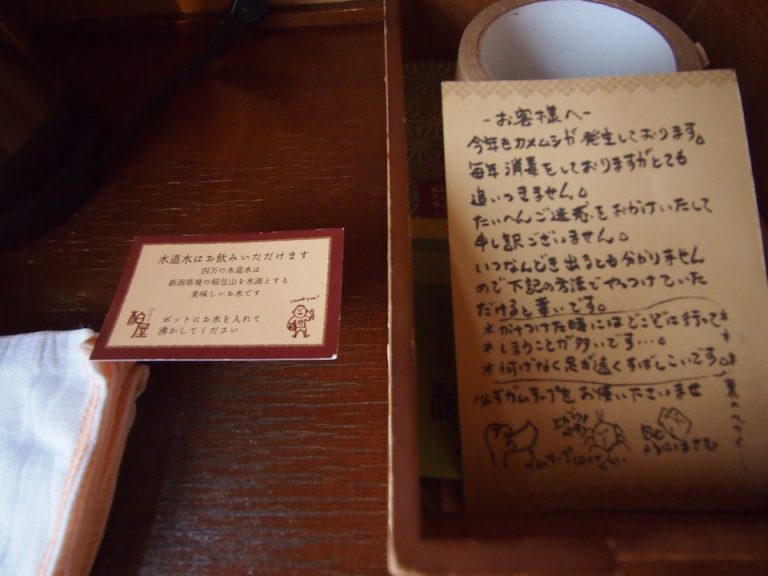 水道水はお飲みいただけます
四万の水道水は
新潟県境の稲包山を水源とする
美味しいお水です
柏屋
ポットにお水を入れて
沸かしてください
-お客様へ-
今年もカメムシが発生しております。
毎年消毒をしておりますがとても
追いつきません。
たいへんご迷惑をおかけいたして
申し訳ございません。
いつなんどき出るとも分かりません
ので下記の方法でやっつけていた
だけると幸いです。
*がけつけた時にはどこぞに行って*
*しまうことが多いです…。*
*何げなく足が速くすばしこいです。*
必ずガムテープをお使いくださいませ
裏へつづく…